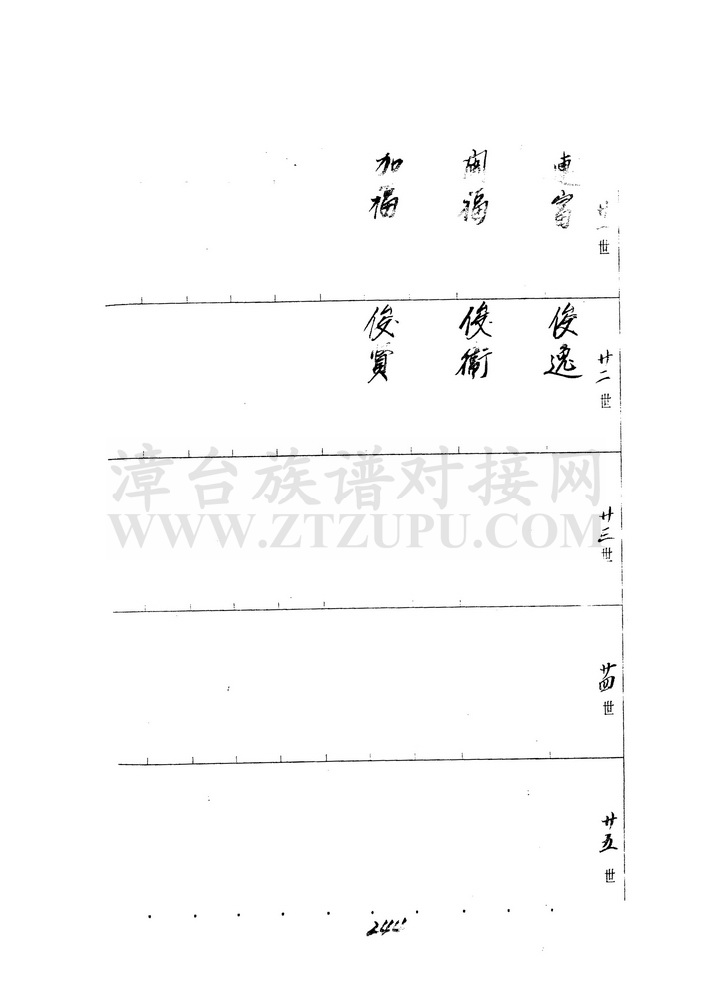 廿一世
連富
開福
加福
廿二世
俊逸
俊衛
俊買
漳台族谱对接网
WWW.ZTZUPU.COM
廿三世
廿四世
廿五世
244